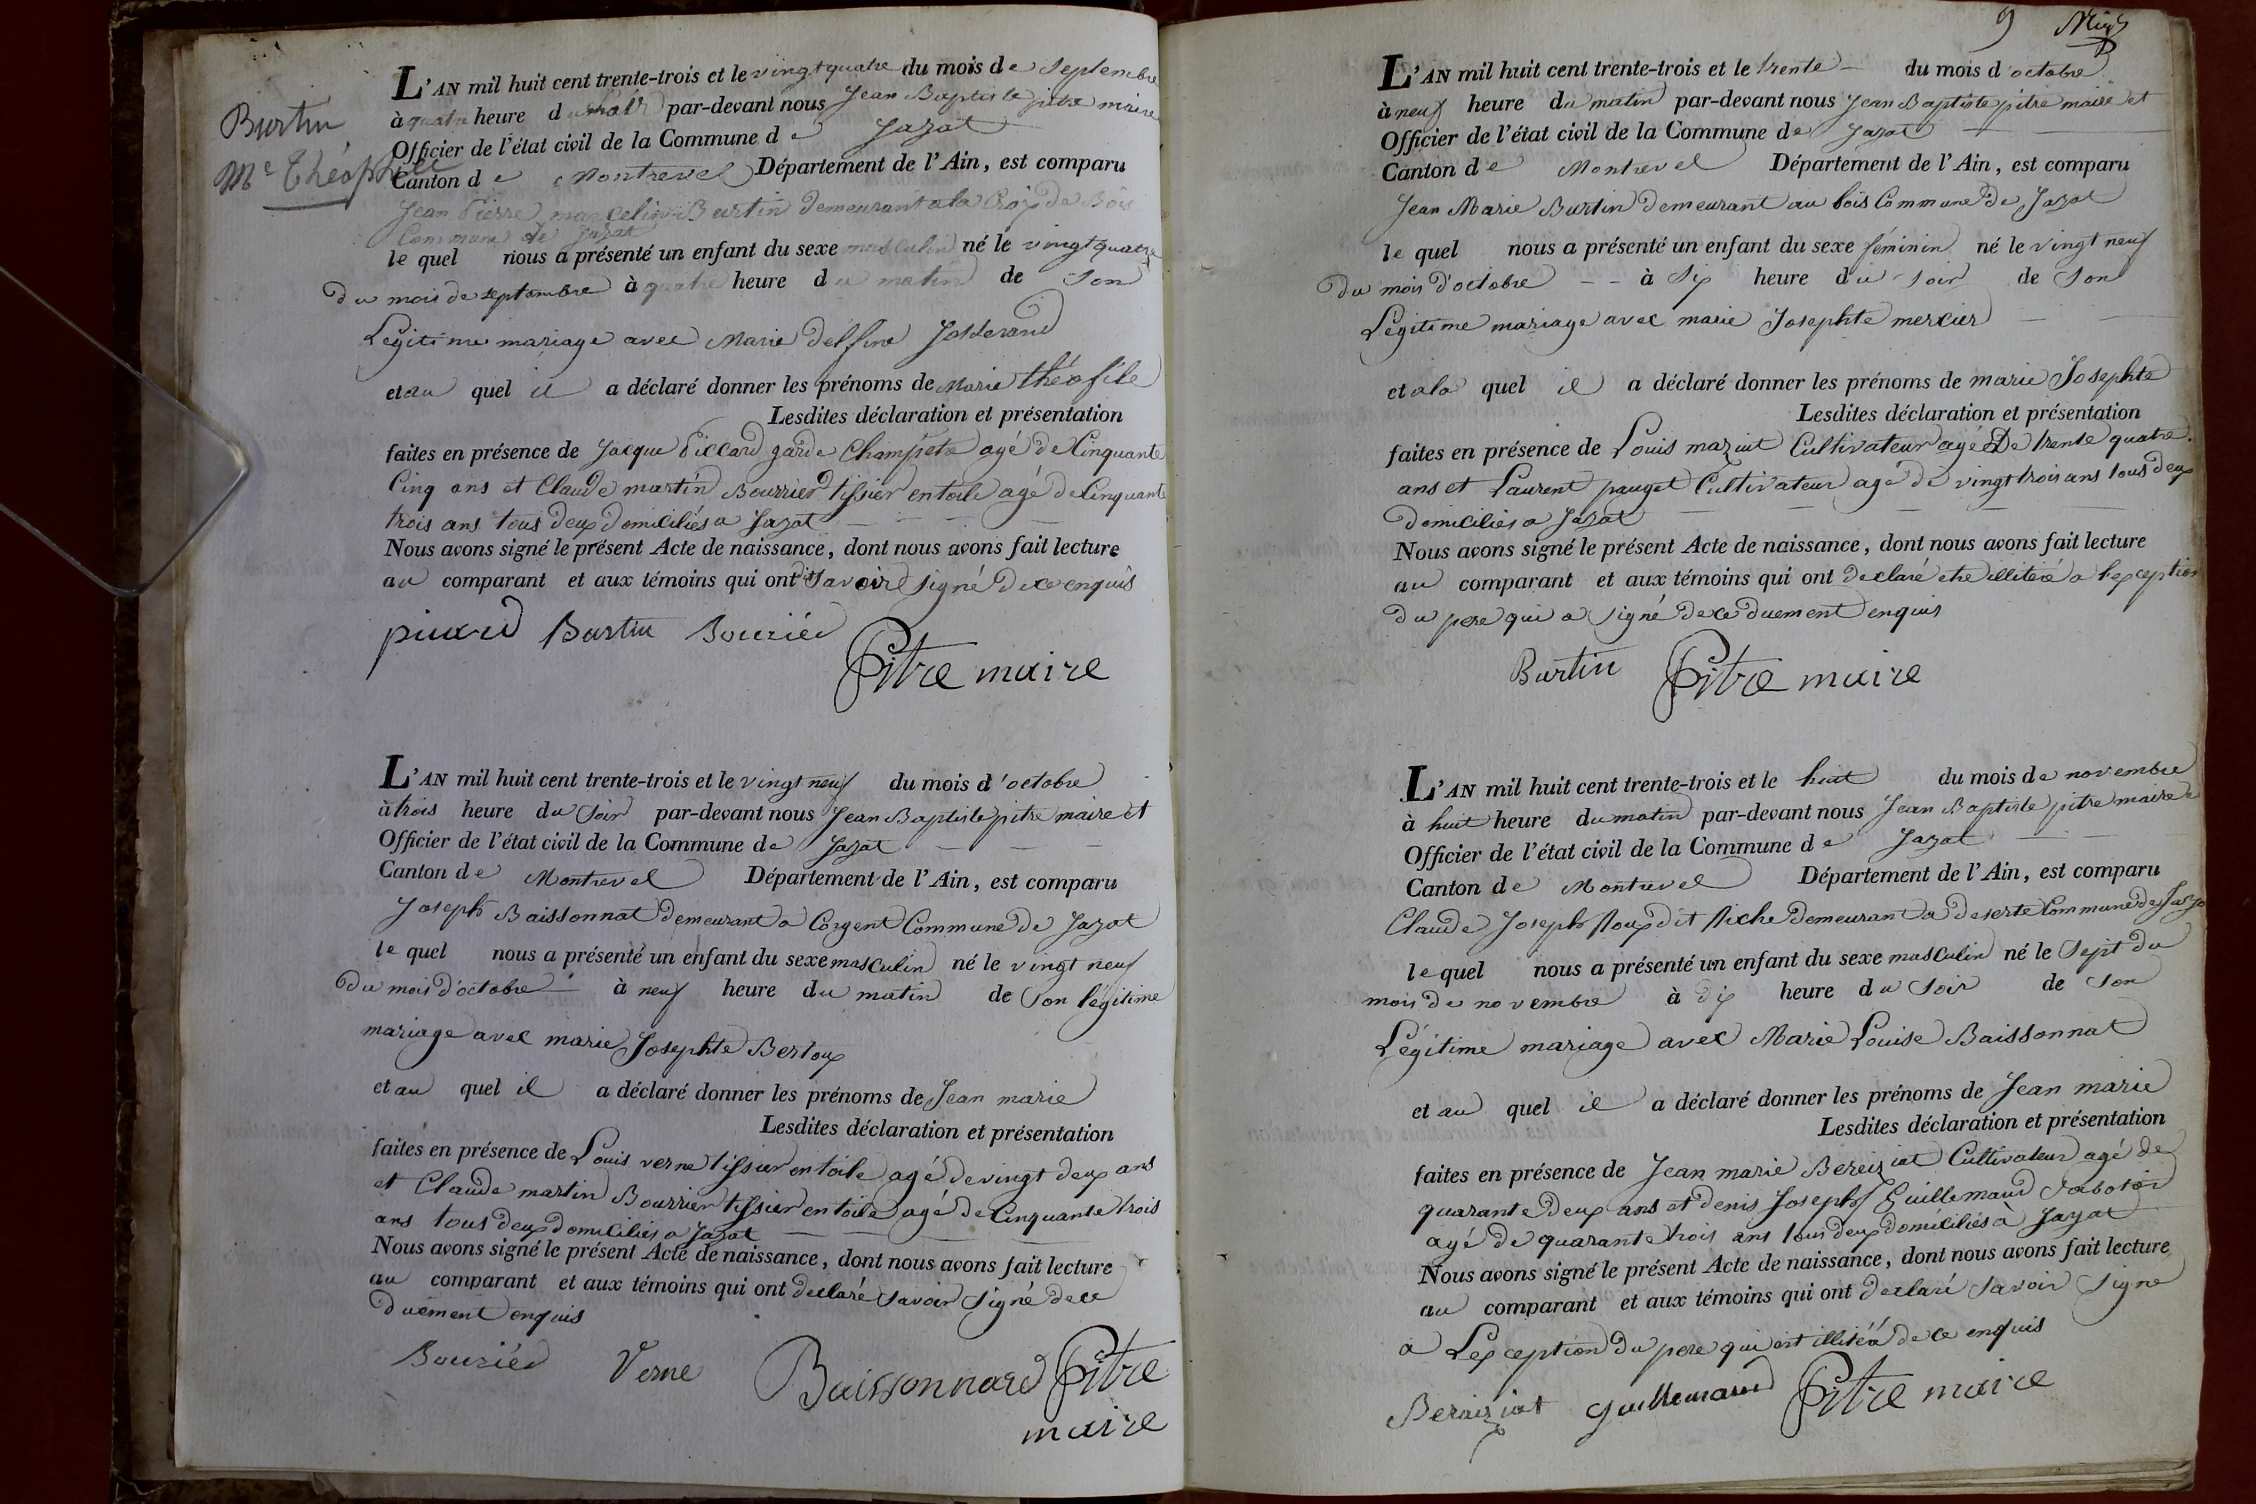 Burtin
Me Théophile
L'AN mil huit cent trente-trois et le vingt quatre du mois de septembre
à quatre heure du soir par-devant nous Jean Baptiste pitre maire
Officier de l'état civil de la Commune de Jazat
Canton de Montrevel Département de l'Ain, est comparu
Jean Pierre marcelin Burtin demeurant a la Croix de Bois
Commune de Jazat
le quel nous a présenté un enfant du sexe masculin né le vingt quatre
du mois de septembre à quatre heure du matin de son
Légitime mariage avec Marie delfine Josserand
et au quel il a déclaré donner les prénoms de Marie théofile
Lesdites déclaration et présentation
faites en présence de Jacque Piccard garde Champetre agé de Cinquante
Cinq ans et Claude martin Bourrier tissier en toile agé de Cinquante
trois ans tous deux domiciliés a Jazat
Nous avons signé le présent Acte de naissance, dont nous avons fait lecture
au comparant et aux témoins qui ont dit savoir signé de ce enquis
picard Burtin Bouriéd
Pitre maire
L'AN mil huit cent trente-trois et le vingt neuf du mois d'octobre
à trois heure du soir par-devant nous Jean Baptiste pitre maire et
Officier de l'état civil de la Commune de Jazat
Canton de Montrevel Département de l'Ain, est comparu
Joseph Baissonnat demeurant a Corgent Commune de Jazat
le quel nous a présenté un enfant du sexe masculin né le vingt neuf
du mois d'octobre à neuf heure du matin de son légitime
mariage avec marie Josephte Berloux
et au quel il a déclaré donner les prénoms de Jean marie
Lesdites déclaration et présentation
faites en présence de Louis verne tissier en toile agé de vingt deux ans
et Claude martin Bourrier tissier en toile agé de Cinquante trois
ans tous deux domiciliés a Jazat
Nous avons signé le présent Acte de naissance, dont nous avons fait lecture
au comparant et aux témoins qui ont declaré savoir signé de ce
duement enquis
Bouriéd Verne Baissonnard Pitre
maire
9
L'AN mil huit cent trente-trois et le trente du mois d'octobre
à neuf heure du matin par-devant nous Jean Baptiste pitre maire et
Officier de l'état civil de la Commune de Jazat
Canton de Montrevel Département de l'Ain, est comparu
Jean Marie Burtin demeurant au bois Commune de Jazat
le quel nous a présenté un enfant du sexe féminin né le vingt neuf
du mois d'octobre à six heure du soir de son
Légitime mariage avec marie Josephte mercier
et a la quel il a déclaré donner les prénoms de marie Josephte
Lesdites déclaration et présentation
faites en présence de Louis maziut Cultivateur agé de trente quatre
ans et Laurent pauget Cultivateur agé de vingt trois ans tous deux
domiciliés a Jazat
Nous avons signé le présent Acte de naissance, dont nous avons fait lecture
au comparant et aux témoins qui ont declaré etre illiteré a l'exception
du pere qui a signé de ce duement enquis
Burtin Pitre maire
L'AN mil huit cent trente-trois et le huit du mois de novembre
à huit heure du matin par-devant nous Jean Baptiste pitre maire e
Officier de l'état civil de la Commune de Jazat
Canton de Montrevel Département de l'Ain, est comparu
Claude Joseph Roux dit Riche demeurant a deserte Commune de Jaza
le quel nous a présenté un enfant du sexe masculin né le sept du
mois de novembre à dix heure du soir de son
Légitime mariage avec Marie Louise Baissonnat
et au quel il a déclaré donner les prénoms de Jean marie
Lesdites déclaration et présentation
faites en présence de Jean marie Bereiziat Cultivateur agé de
quarante deux ans et denis Joseph Guillemaud sabotier
agé de quarante trois ans tous deux domiciliés à Jazat
Nous avons signé le présent Acte de naissance, dont nous avons fait lecture
au comparant et aux témoins qui ont declaré savoir signe
a Lexception du pere qui est illitéré de ce enquis
Beraiziat guillemaud Pitre maire